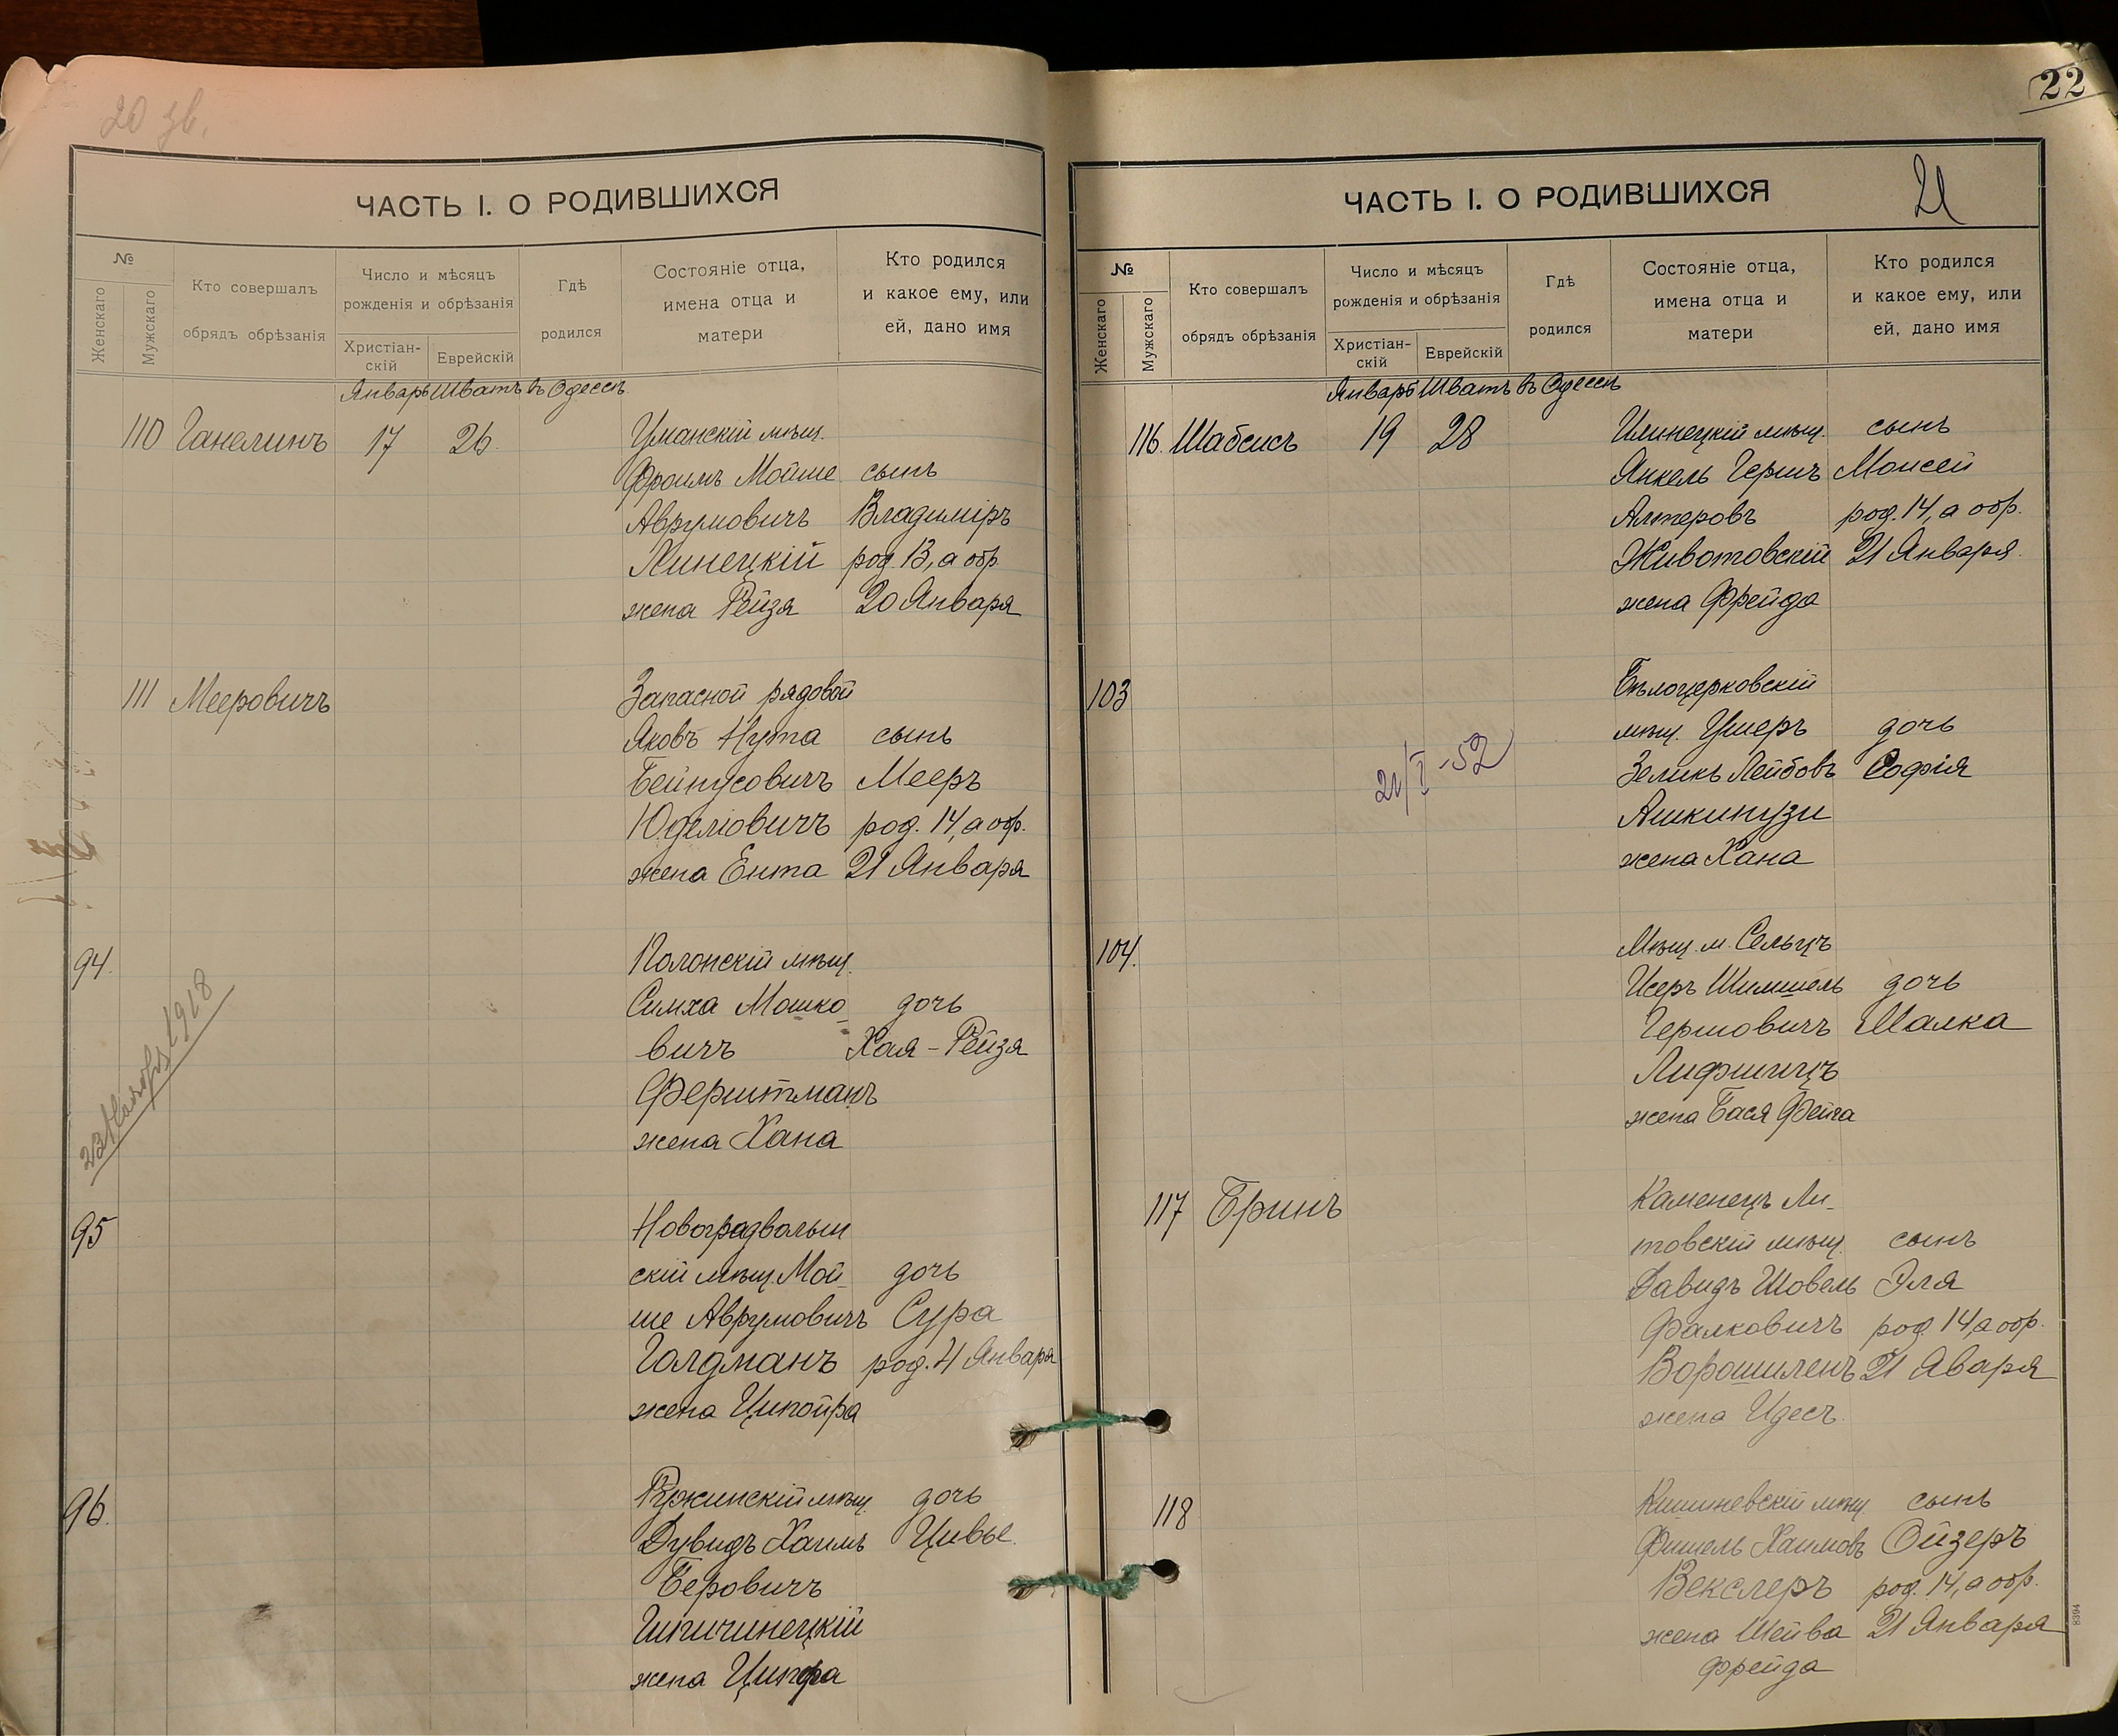 20 зв.
ЧАСТЬ I. О РОДИВШИХСЯ
№
Женскаго
Мужскаго
Кто совершалъ
обрядъ обрѣзанія
Число и мѣсяцъ
рожденія и обрѣзанія
Христіан-
скій
Еврейскій
Гдѣ
родился
Состояніе отца,
имена отца и
матери
Кто родился
и какое ему, или
ей, дано имя
Январь Шватъ въ Одессѣ
110 Ганелинъ 17 26. Уманскій мѣщ.
Фроимъ Мойше сынъ
Аврумовичъ Владиміръ
Линецкій род. 13, а обр.
жена Рейзя 20 Января
111 Мееровичъ Запасной рядовой
Яковъ Нута сынъ
Бейнусовичъ Мееръ
Юделіовичъ род. 14, а обр.
жена Ента 21 Января
94. Полонскій мѣщ.
Симха Мошко- дочь
вичъ Хая-Рейзя
Ферштманъ
жена Хана
1918
95 Новоградволын
скій мѣщ. Мой- дочь
ше Аврумовичъ Сура
Голдманъ род. 4 Января
жена Ципойра
96. Ружинскій мѣщ. дочь
Дувидъ Хаимъ Цивье.
Беровичъ
Шпичинецкій
жена Ципра
22
ЧАСТЬ I. О РОДИВШИХСЯ
21
№
Женскаго
Мужскаго
Кто совершалъ
обрядъ обрѣзанія
Число и мѣсяцъ
рожденія и обрѣзанія
Христіан-
скій
Еврейскій
Гдѣ
родился
Состояніе отца,
имена отца и
матери
Кто родился
и какое ему, или
ей, дано имя
Январь Шватъ въ Одессѣ
116. Шабсисъ 19 28 Илинецкій мѣщ. сынъ
Янкель Гершъ Моисей
Алтеровъ род. 14, а обр.
Животовскій 21 Января.
жена Фрейда
103 Бѣлоцерковскій
мѣщ. Ушеръ дочь
Зеликъ Лейбовъ Софія
Ашкинузи
жена Хана
21/I-52
104. Мѣщ. м. Сельцъ
Исеръ Шимшель дочь
Гершовичъ Малка
Лифшицъ
жена Бася Фейга
117 Бринъ Каменецъ Ли-
товскій мѣщ. сынъ
Давидъ Шовель Эля
Фалковичъ род. 14, а обр.
Ворошиленъ 21 Аваря
жена Идесъ
118 Кишиневскій мѣщ. сынъ
Фишель Хаимовъ Ойзеръ
Векслеръ род. 14, а обр.
жена Шейва 21 Января
Фрейда
8394